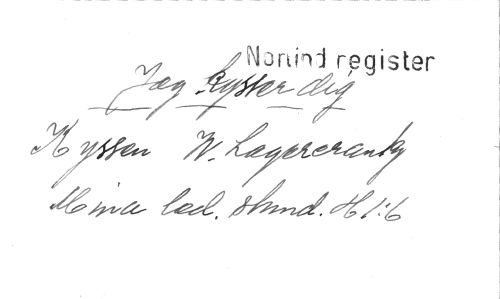 Nonind register
Jag kysser dig
Kyssen W. Lagercrantz
Mina led. stund. H 1:6